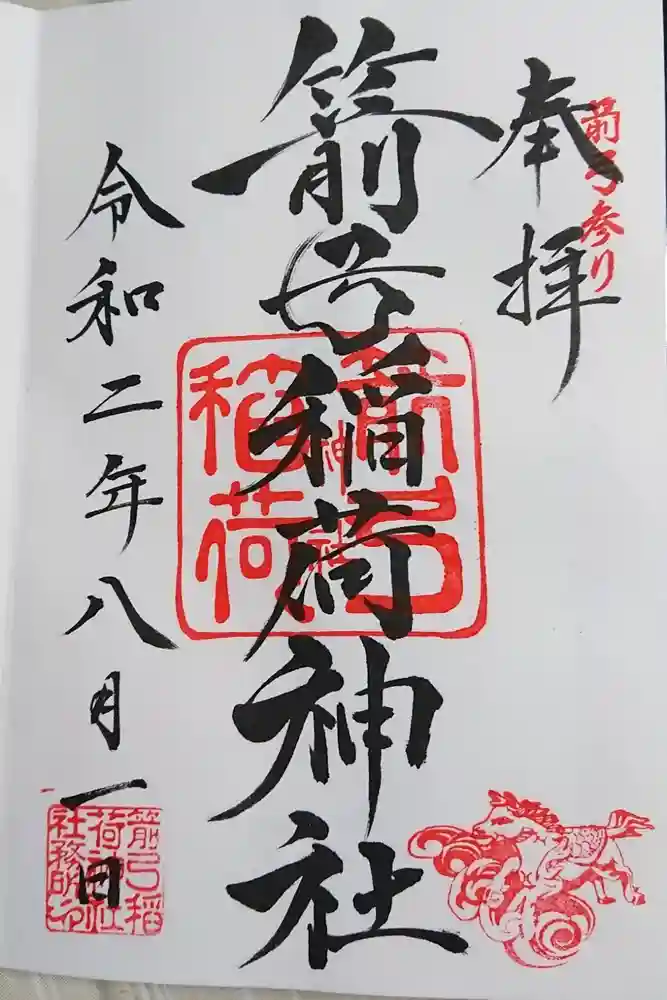 奉拝
箭弓参り
箭弓稲荷神社
箭弓
稲荷
神社
令和二年八月一日
箭弓稲
荷神社
社務所之印